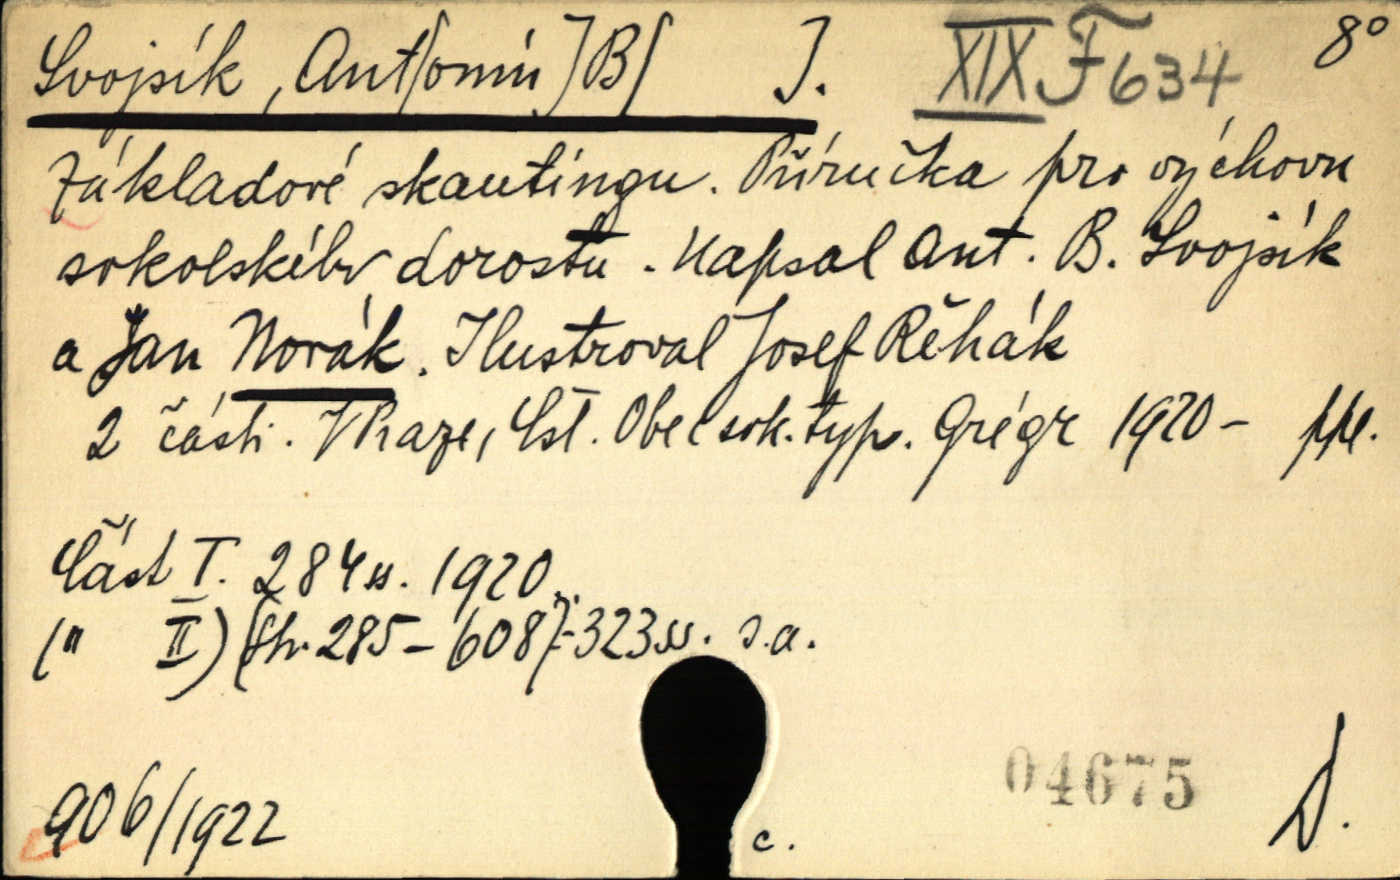 Svojsík, Ant[onín] B[ ]. XIX F 634 8°
Základové skautingu. Příručka pro výchovu
sokolského dorostu. Napsal Ant. B. Svojsík
a Jan Novák. Ilustroval Josef Řěhák
2 části. V Praze, Čsl. Obec sok. typ. Grégr 1920 - ppl.
Část I. 284 ss. 1920.
(" II) (Str. 285 - 608) - 323 ss. s.a.
906/1922
04675
c.